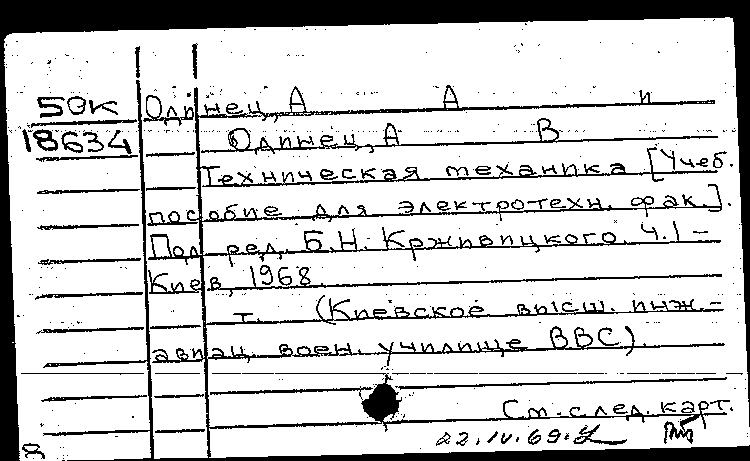 50к Одинец, А А и
18634 Одинец, А В
Техническая механика [Учеб.
пособие для электротехн. фак.].
Под ред. Б.Н. Крживицкого. Ч.1 –
Киев, 1968.
т. (Киевское высш. инж.-
авиац. воен. училище ВВС).
См. след. карт.
22.IV.69.
8